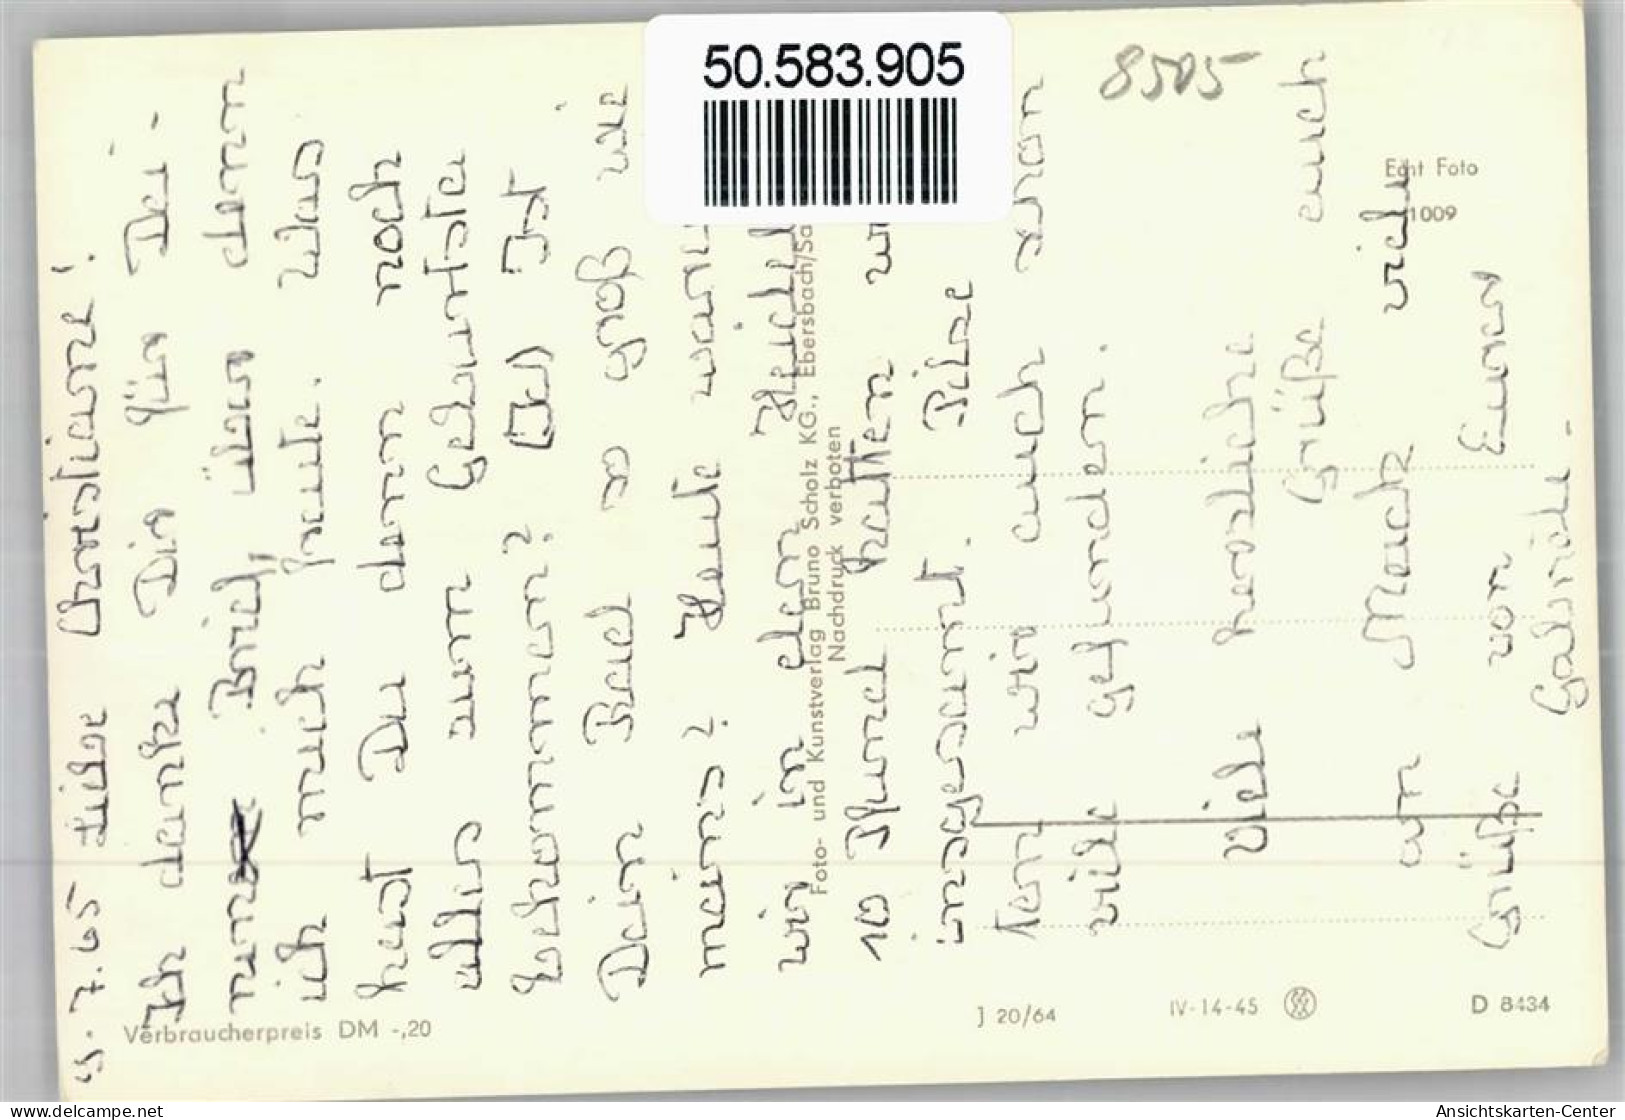 50.583.905
8505
Echt Foto
1009
9.7.65 Liebe Christiane!
Ich danke Dir für Dei-
nen Brief, über dem
ich mich freute. Was
hast Du denn noch
alles zum Geburtsta
bekommen? (Du) Ist
Dein Rad so groß wie
meins? Heute waren
wir in den Heidel
10 Pfund hatten w
insgesamt. Pilze
ten wir auch schon
viele gefunden.
Viele herzliche
Grüße euch
an Mack viele
Grüße von Eurer
Gabriele.
Foto- und Kunstverlag Bruno Scholz KG., Ebersbach/Sa
Nachdruck verboten
Verbraucherpreis DM -,20
J 20/64
IV-14-45
D 8434
www.delcampe.net
Ansichtskarten-Center